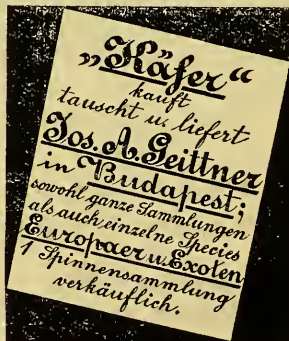 „Käfer“
kauft
tauscht u. liefert
Jos. A. Geittner
in Budapest;
sowohl ganze Sammlungen
als auch einzelne Species
Europaer u. Exoten
1 Spinnensammlung
verkäuflich.